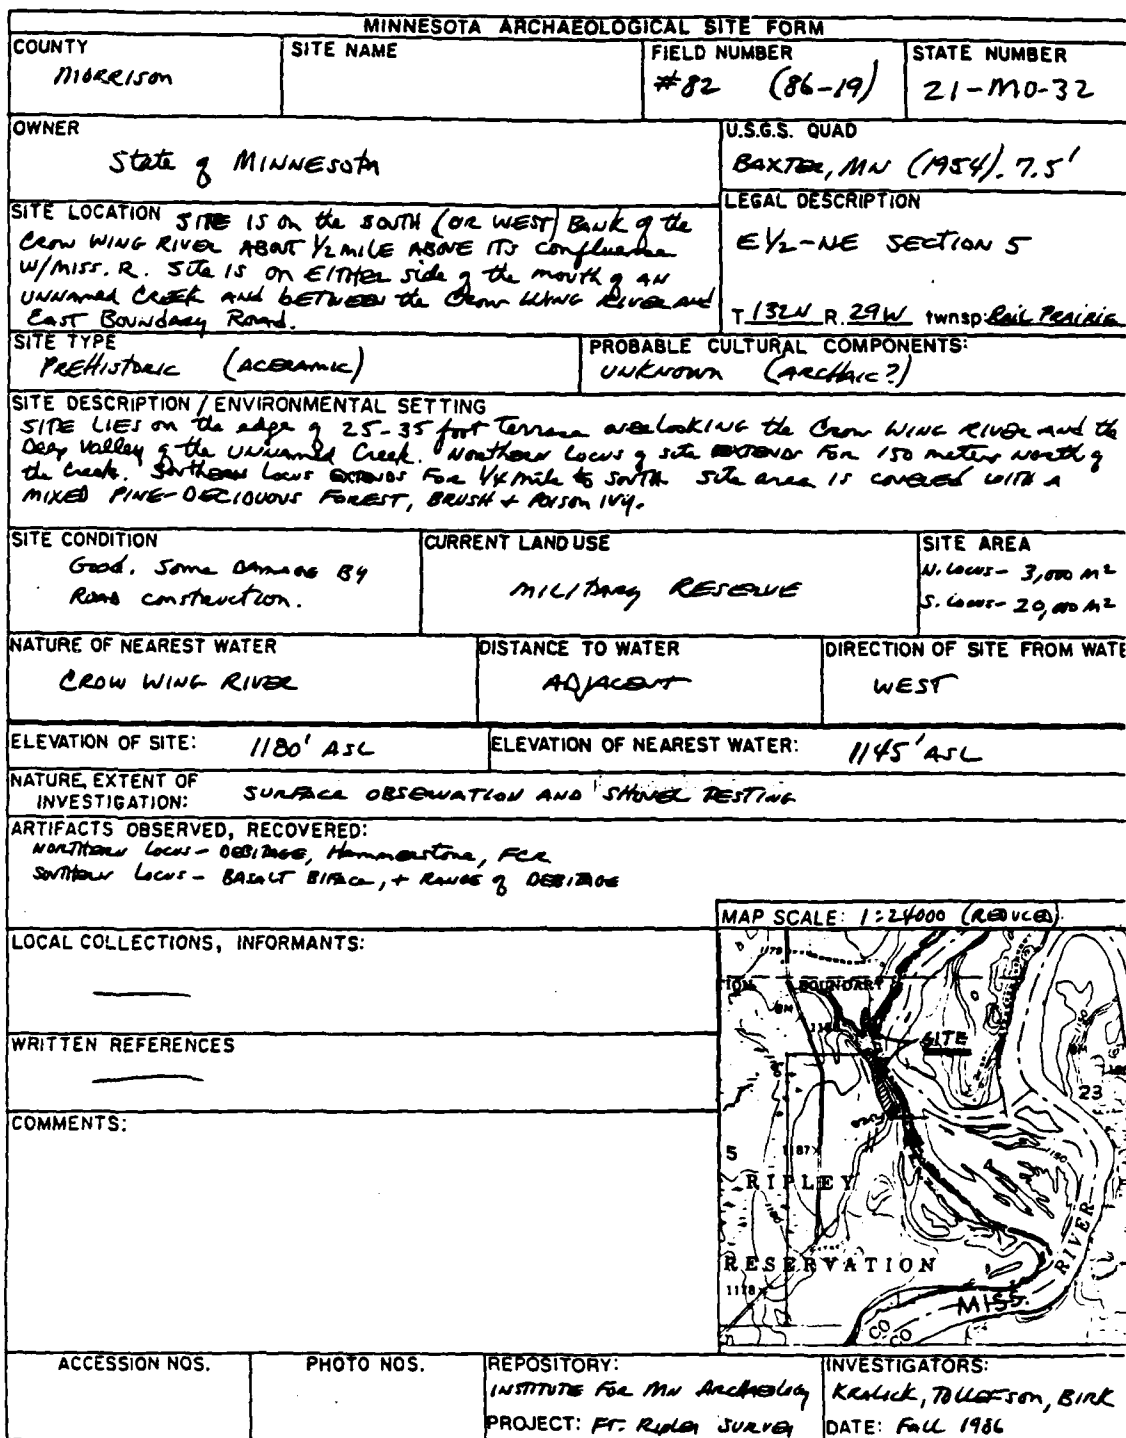 MINNESOTA ARCHAEOLOGICAL SITE FORM
COUNTY
Morrison
SITE NAME
FIELD NUMBER
#82 (86-19)
STATE NUMBER
21-MO-32
OWNER
State of MINNESOTA
U.S.G.S. QUAD
BAXTER, MN (1954). 7.5'
SITE LOCATION SITE IS on the SOUTH (OR WEST) BANK of the
CROW WING RIVER ABOUT 1/2 MILE ABOVE ITS confluence
W/MISS. R. Site is on EITHER side of the mouth of AN
UNNAMED CREEK and BETWEEN the CROW WING RIVER and
East Boundary Road.
LEGAL DESCRIPTION
E1/2-NE SECTION 5
T. 132N R. 29W twnsp: RAIL PRAIRIE
SITE TYPE
PREHISTORIC (ACERAMIC)
PROBABLE CULTURAL COMPONENTS:
UNKNOWN (ARCHAIC?)
SITE DESCRIPTION / ENVIRONMENTAL SETTING
SITE LIES on the edge of 25-35 foot terrace overlooking the Crow WING RIVER and the
Deep Valley of the UNNAMED Creek. Northern Locus of site EXTENDS FOR 150 meters north of
the Creek. Southern Locus EXTENDS FOR 1/4 mile to South. Site area is covered with a
MIXED PINE-DECIDUOUS FOREST, BRUSH + POISON IVY.
SITE CONDITION
Good. Some DAMAGE BY
ROAD construction.
CURRENT LAND USE
MILITARY RESERVE
SITE AREA
N. Locus- 3,000 M²
S. Locus- 20,000 M²
NATURE OF NEAREST WATER
CROW WING RIVER
DISTANCE TO WATER
ADJACENT
DIRECTION OF SITE FROM WATE
WEST
ELEVATION OF SITE: 1180' ASL
ELEVATION OF NEAREST WATER: 1145' ASL
NATURE, EXTENT OF
INVESTIGATION: SURFACE OBSERVATION AND SHOVEL TESTING
ARTIFACTS OBSERVED, RECOVERED:
NORTHERN Locus - DEBITAGE, Hammerstone, FCR
SOUTHERN Locus - BASALT BIFACE, + RANGE of DEBITAGE
MAP SCALE: 1:24000 (REDUCED)
LOCAL COLLECTIONS, INFORMANTS:
WRITTEN REFERENCES
COMMENTS:
1179
BOUNDARY
BM
SITE
23
5
1187
1150
RIPLEY
RESERVATION
1178
RIVER
MISS.
CO
CO
ACCESSION NOS.
PHOTO NOS.
REPOSITORY:
INSTITUTE FOR MN ARCHAEOLOGY
PROJECT: FT. Ripley SURVEY
INVESTIGATORS:
KRALICK, TOLLEFSON, BIRK
DATE: Fall 1986